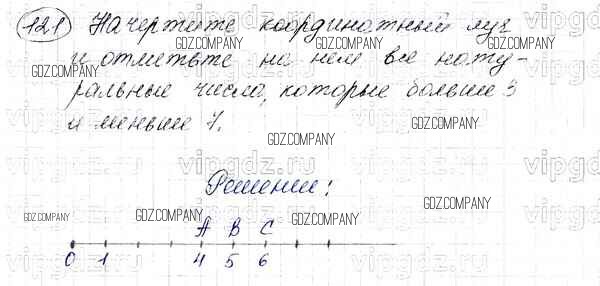 121 Начертите координатный луч
и отметьте на нем все нату-
ральные числа, которые больше 3
и меньше 7.
Решение:
A B C
0 1 4 5 6
GDZ.COMPANY
GDZ.COMPANY
GDZ.COMPANY
GDZ.COMPANY
GDZ.COMPANY
GDZ.COMPANY
GDZ.COMPANY
GDZ.COMPANY
GDZ.COMPANY
vipgdz.ru
vipgdz.ru
vipgdz.ru